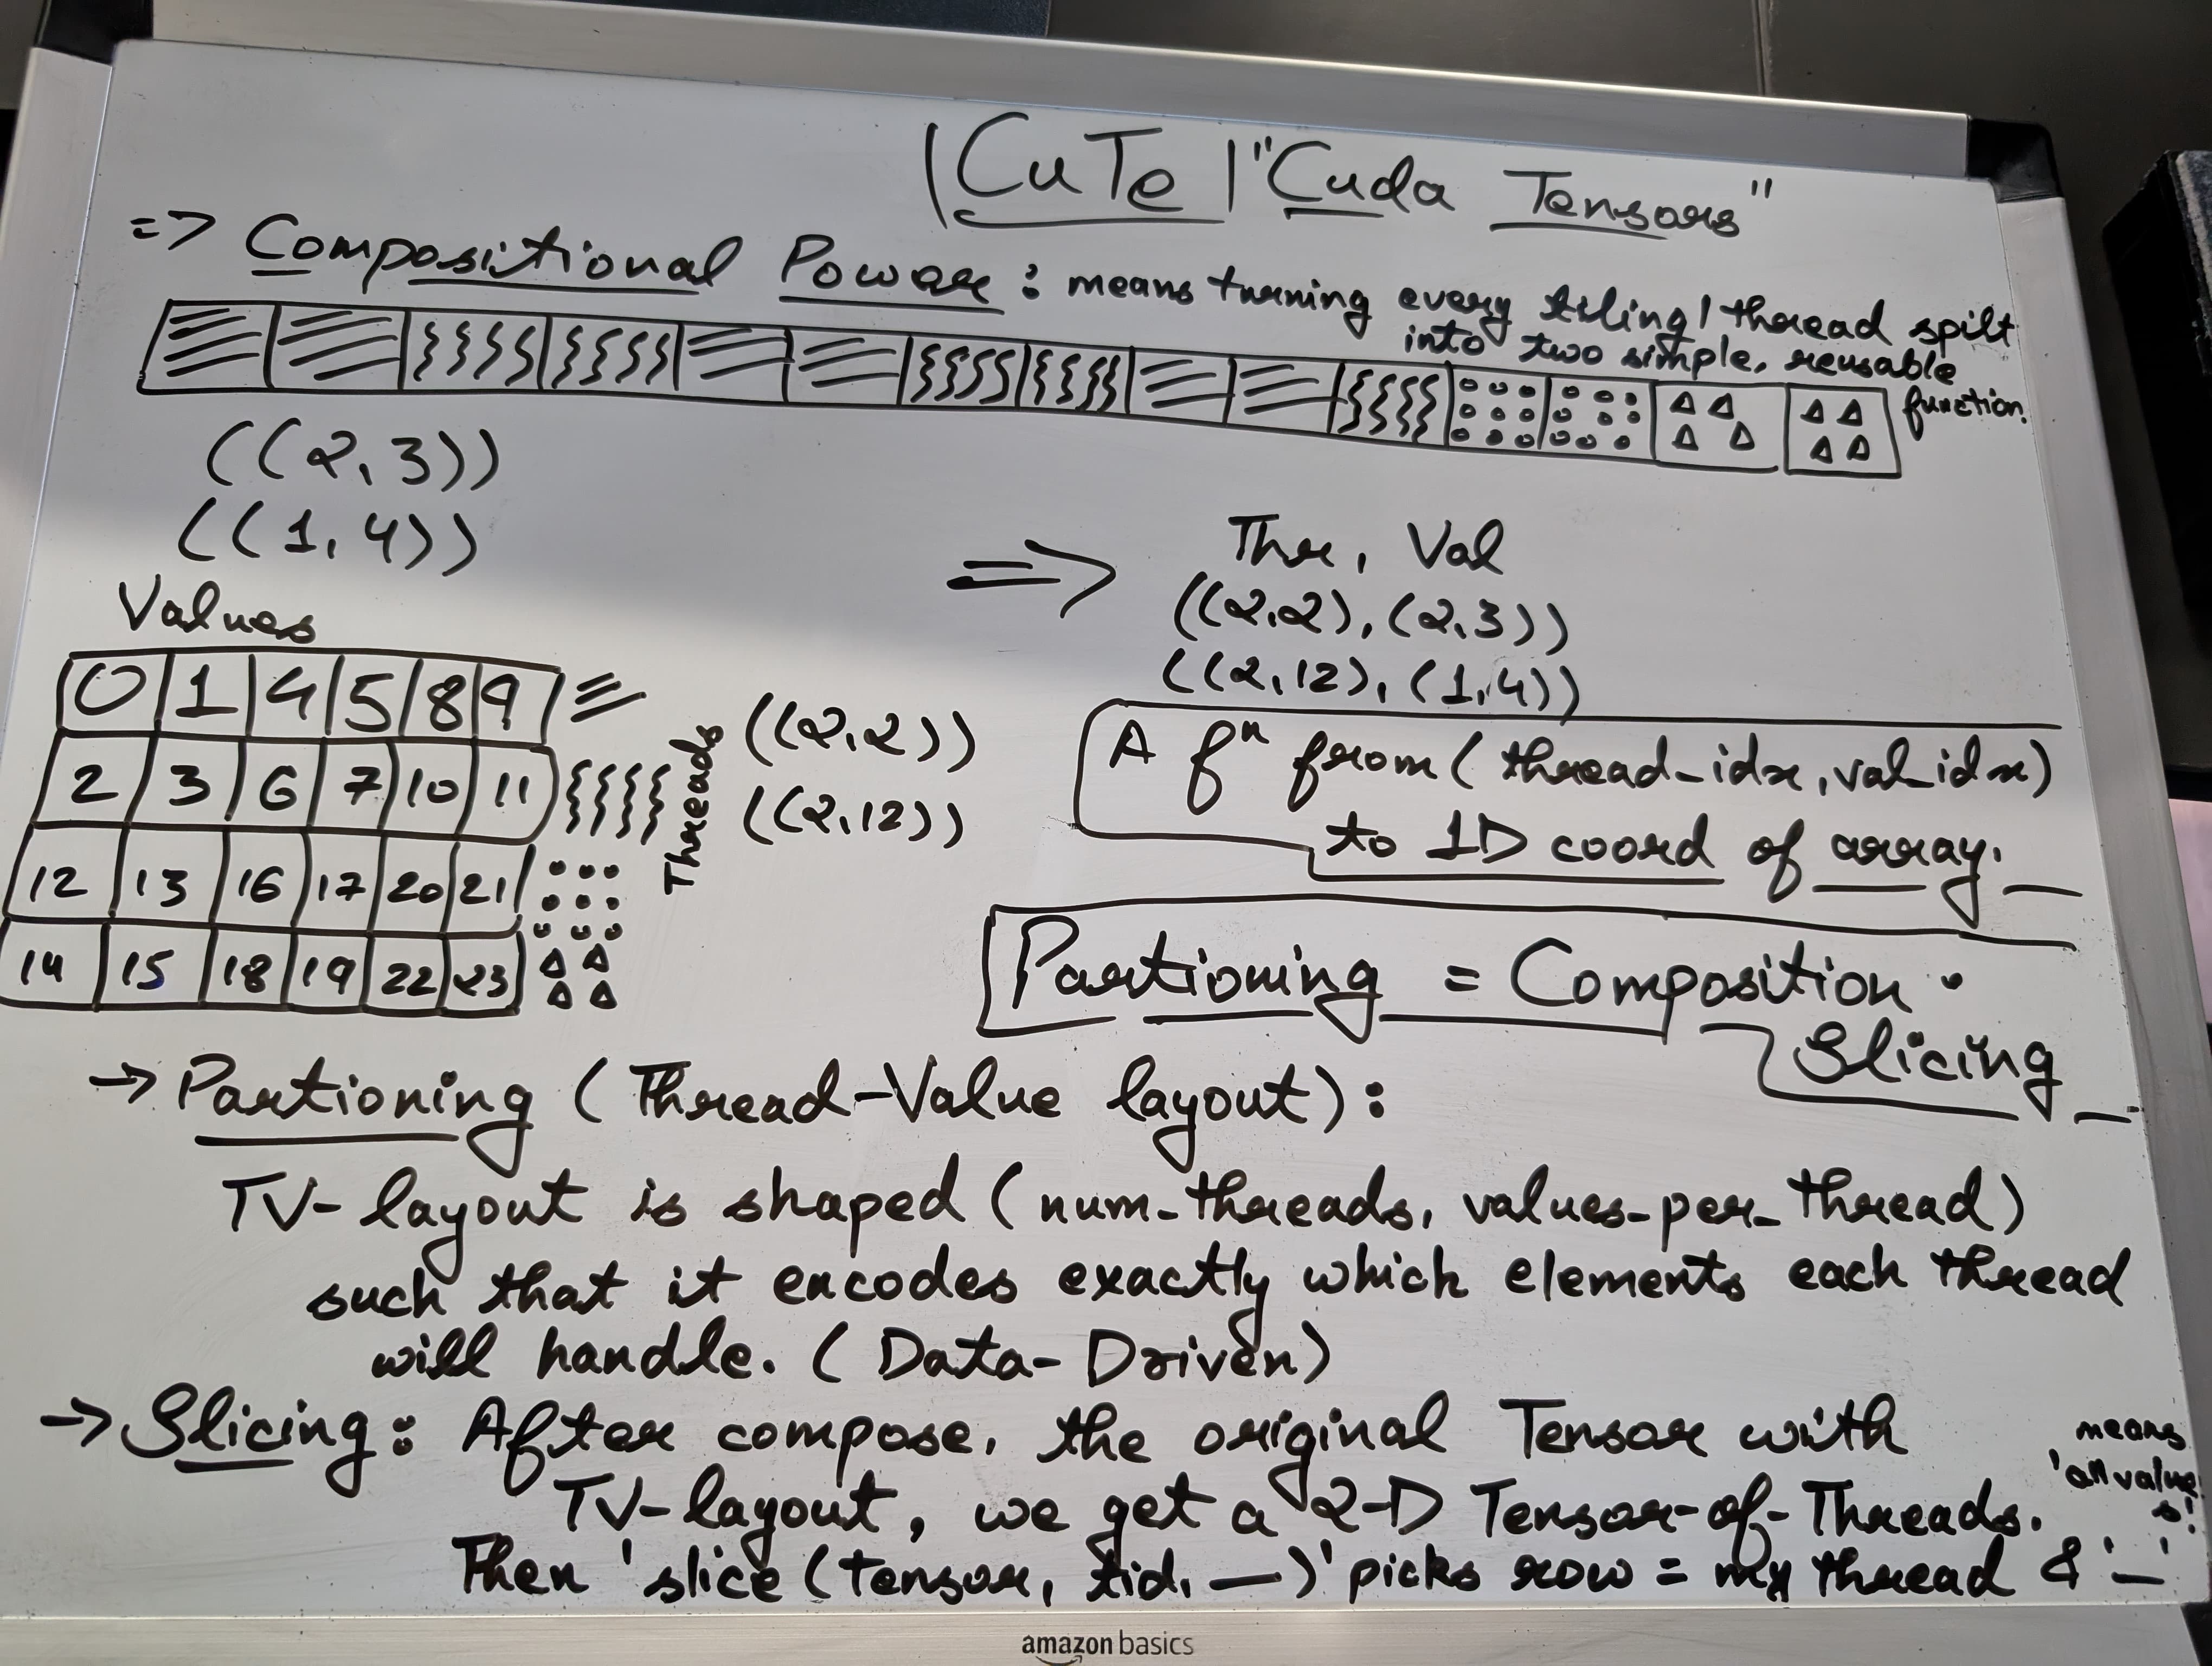 |CuTe| "Cuda Tensors"
=> Compositional Power: means turning every tiling/thread spilt
into two simple, reusable
function.
((2,3))
((1,4))
Values
0 1 4 5 8 9
2 3 6 7 10 11
12 13 16 17 20 21
14 15 18 19 22 23
Threads
((2,2))
((2,12))
=>
Thr, Val
((2,2),(2,3))
((2,12),(1,4))
A fⁿ from (thread_idx, val_idx)
to 1D coord of array.
Partioning = Composition .
Slicing
-> Partioning (Thread-Value layout):
TV-layout is shaped (num_threads, values_per_thread)
such that it encodes exactly which elements each thread
will handle. (Data-Driven)
-> Slicing: After compose, the original Tensor with
TV-layout, we get a 2-D Tensor-of-Threads.
Then 'slice (tensor, tid, _)' picks row = my thread & '_'
means
'all value
s!
amazon basics